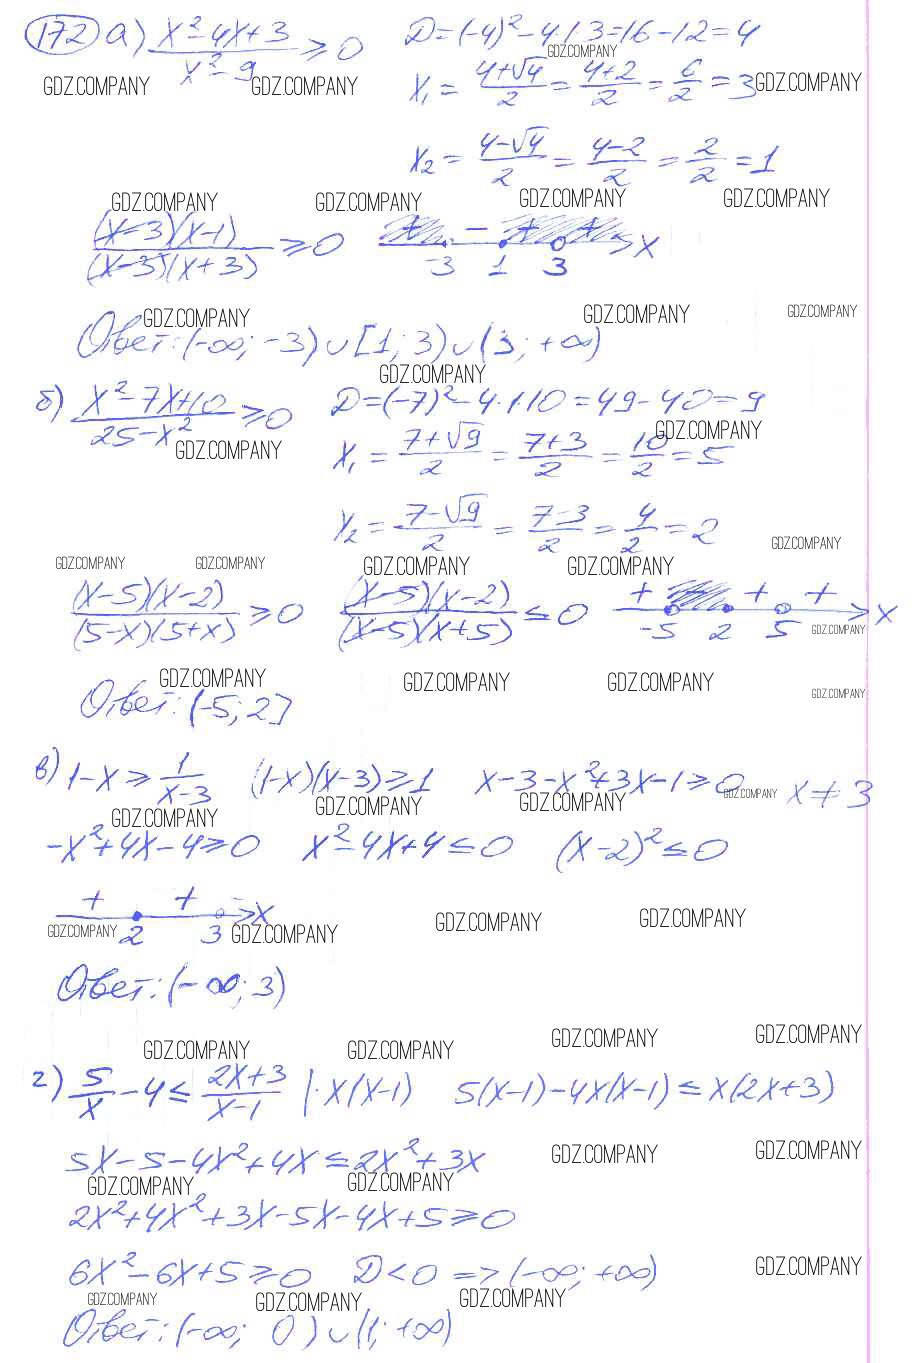 172 а) (x² - 4x + 3)/(x² - 9) ≥ 0   D = (-4)² - 4·1·3 = 16 - 12 = 4
GDZ.COMPANY GDZ.COMPANY GDZ.COMPANY GDZ.COMPANY
x₁ = (4+√4)/2 = (4+2)/2 = 6/2 = 3
x₂ = (4-√4)/2 = (4-2)/2 = 2/2 = 1
GDZ.COMPANY GDZ.COMPANY GDZ.COMPANY GDZ.COMPANY
(x-3)(x-1)/(x-3)(x+3) ≥ 0   + - + + x
-3 1 3
GDZ.COMPANY GDZ.COMPANY GDZ.COMPANY
Ответ: (-∞; -3) ∪ [1; 3) ∪ (3; +∞)
GDZ.COMPANY
б) (x² - 7x + 10)/(25 - x²) ≥ 0   D = (-7)² - 4·1·10 = 49 - 40 = 9
GDZ.COMPANY GDZ.COMPANY
x₁ = (7+√9)/2 = (7+3)/2 = 10/2 = 5
x₂ = (7-√9)/2 = (7-3)/2 = 4/2 = 2
GDZ.COMPANY
GDZ.COMPANY GDZ.COMPANY GDZ.COMPANY GDZ.COMPANY
(x-5)(x-2)/(5-x)(5+x) ≥ 0   (x-5)(x-2)/(x-5)(x+5) ≤ 0   + + + x
-5 2 5 GDZ.COMPANY
GDZ.COMPANY GDZ.COMPANY GDZ.COMPANY GDZ.COMPANY
Ответ: (-5; 2]
в) 1-x ≥ 1/(x-3)   (1-x)(x-3) ≥ 1   x-3-x²+3x-1 ≥ 0   x ≠ 3
GDZ.COMPANY GDZ.COMPANY GDZ.COMPANY GDZ.COMPANY
-x²+4x-4 ≥ 0   x²-4x+4 ≤ 0   (x-2)² ≤ 0
+ + - x
2 3
GDZ.COMPANY GDZ.COMPANY GDZ.COMPANY GDZ.COMPANY
Ответ: (-∞; 3)
GDZ.COMPANY GDZ.COMPANY GDZ.COMPANY GDZ.COMPANY
г) 5/x - 4 ≤ (2x+3)/(x-1) |·x(x-1)   5(x-1)-4x(x-1) ≤ x(2x+3)
5x-5-4x²+4x ≤ 2x²+3x
GDZ.COMPANY GDZ.COMPANY GDZ.COMPANY GDZ.COMPANY
2x²+4x²+3x-5x-4x+5 ≥ 0
6x²-6x+5 ≥ 0   D<0 => (-∞; +∞)
GDZ.COMPANY GDZ.COMPANY GDZ.COMPANY GDZ.COMPANY
Ответ: (-∞; 0) ∪ (1; +∞)